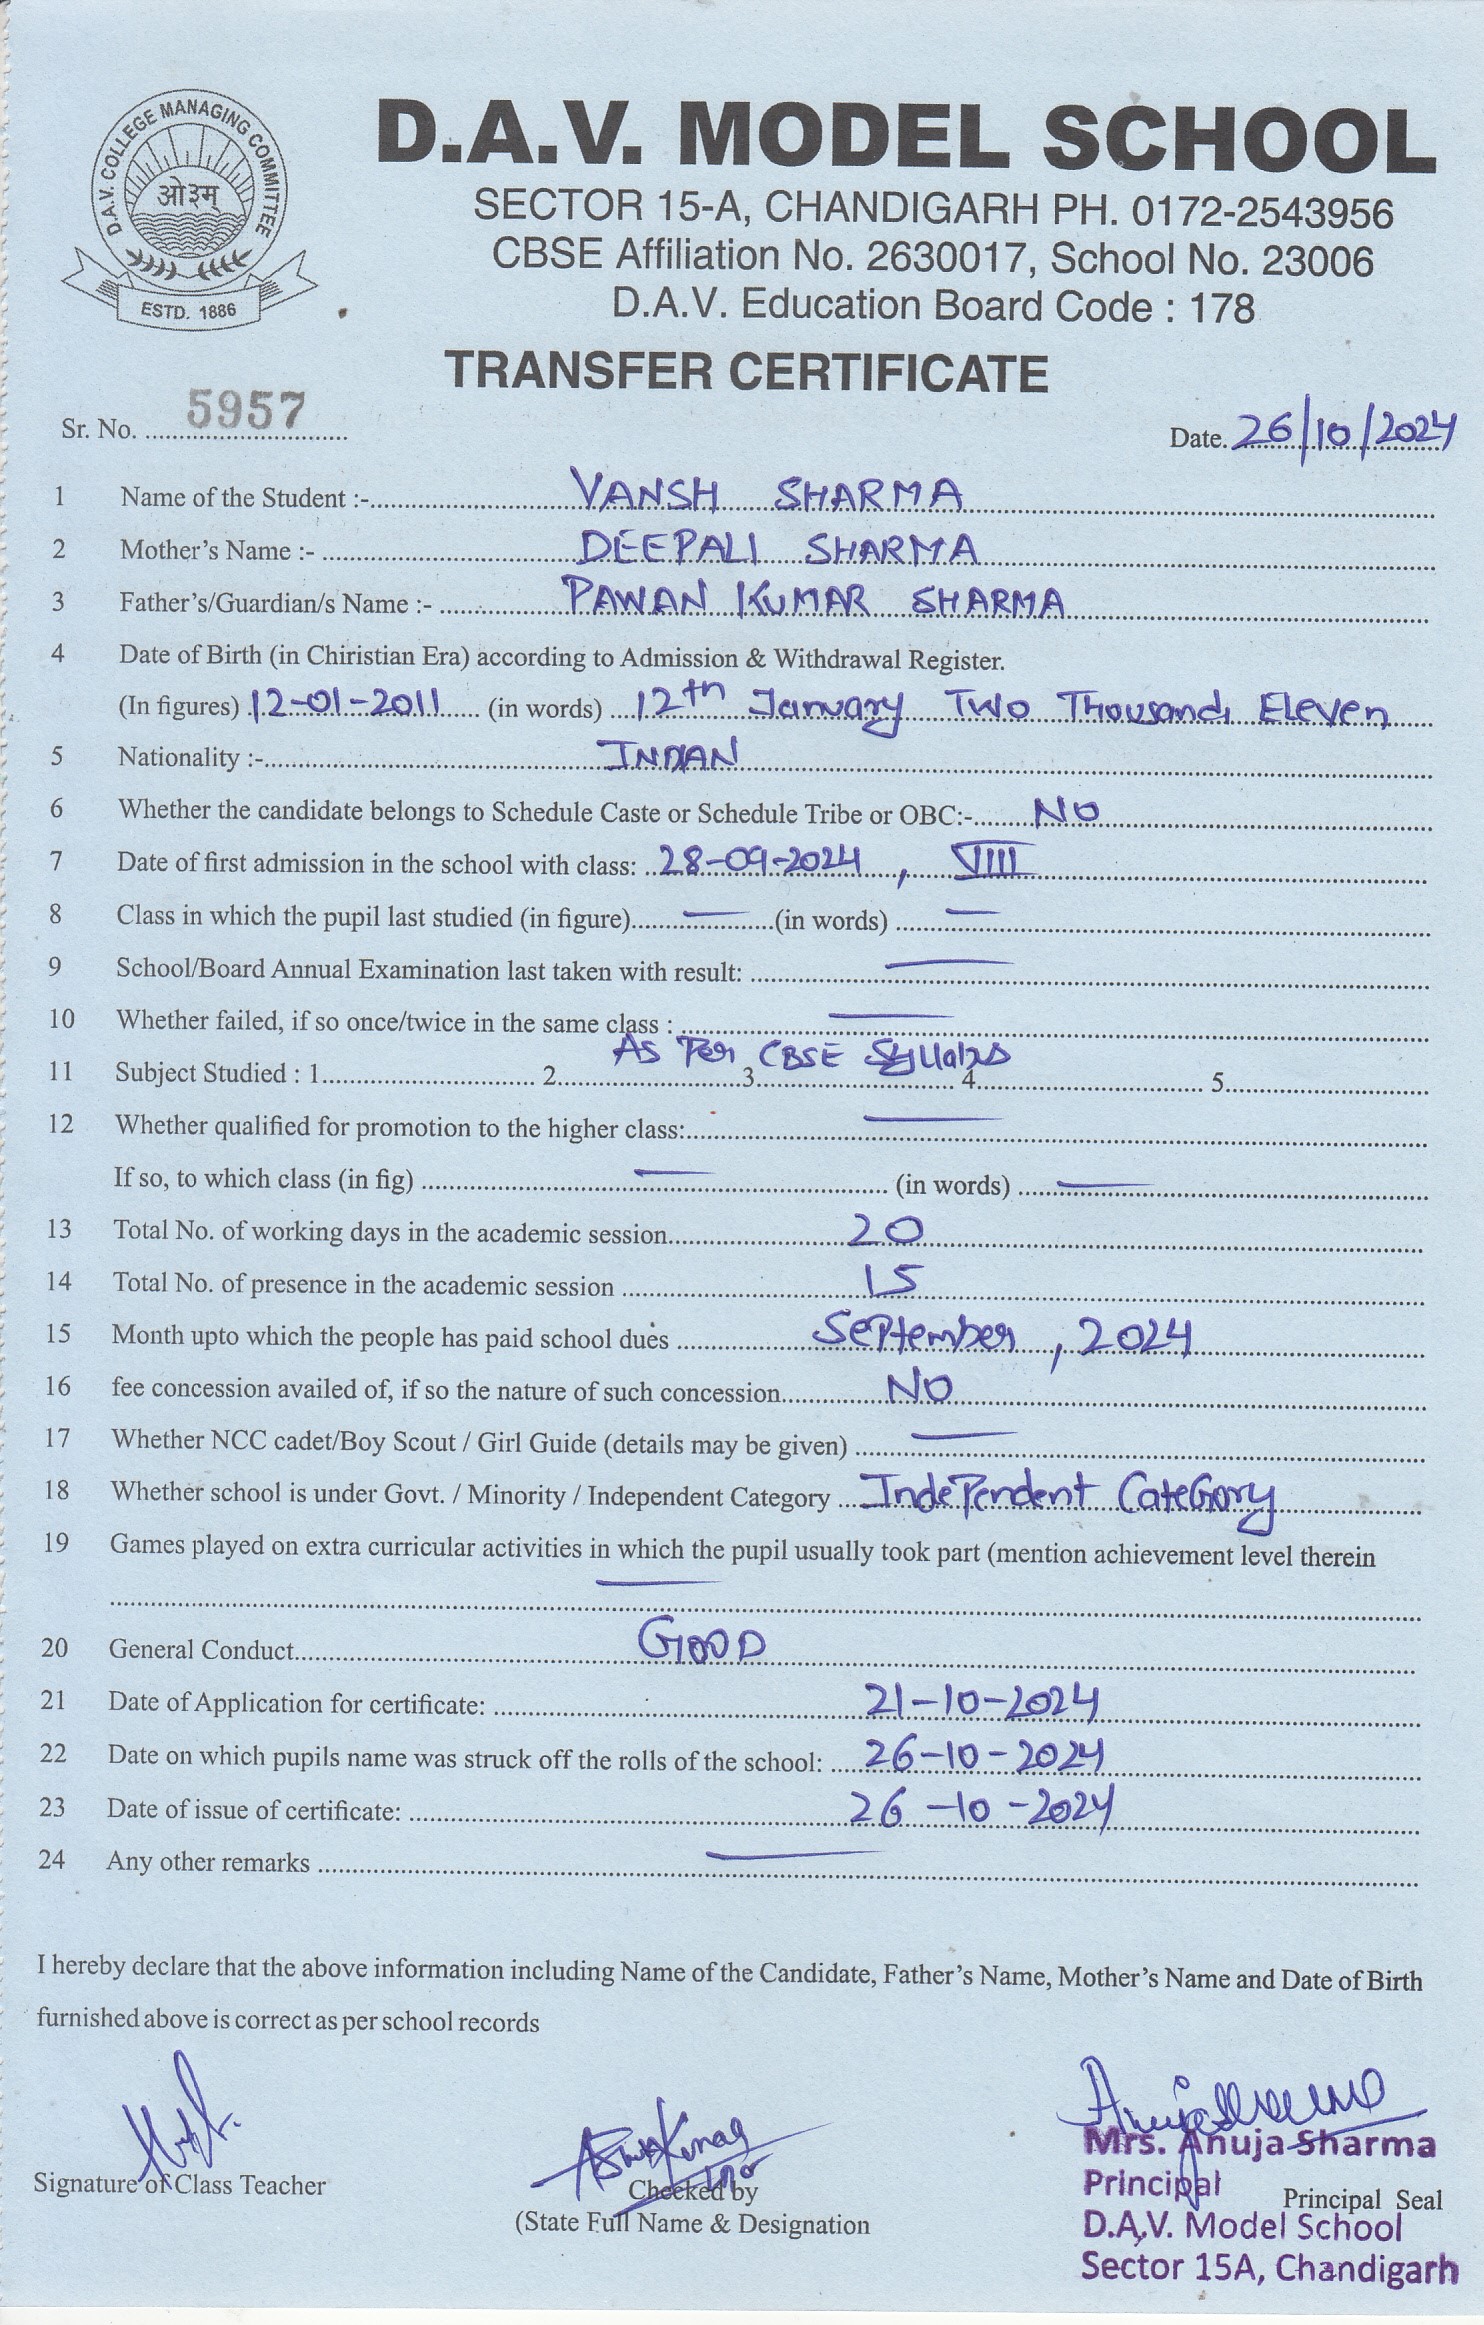 D.A.V. COLLEGE MANAGING COMMITTEE
ओ३म्
ESTD. 1886
D.A.V. MODEL SCHOOL
SECTOR 15-A, CHANDIGARH PH. 0172-2543956
CBSE Affiliation No. 2630017, School No. 23006
D.A.V. Education Board Code : 178
TRANSFER CERTIFICATE
Sr. No. 5957 Date. 26/10/2024
1 Name of the Student :- VANSH SHARMA
2 Mother's Name :- DEEPALI SHARMA
3 Father's/Guardian/s Name :- PAWAN KUMAR SHARMA
4 Date of Birth (in Chiristian Era) according to Admission & Withdrawal Register.
(In figures) 12-01-2011 (in words) 12th January Two Thousand Eleven
5 Nationality :- INDIAN
6 Whether the candidate belongs to Schedule Caste or Schedule Tribe or OBC:- NO
7 Date of first admission in the school with class: 28-09-2024, VIII
8 Class in which the pupil last studied (in figure) — (in words) —
9 School/Board Annual Examination last taken with result: —
10 Whether failed, if so once/twice in the same class : —
As Per CBSE Syllabs
11 Subject Studied : 1. 2. 3. 4. 5.
12 Whether qualified for promotion to the higher class: —
If so, to which class (in fig) — (in words) —
13 Total No. of working days in the academic session 20
14 Total No. of presence in the academic session 15
15 Month upto which the people has paid school dues September, 2024
16 fee concession availed of, if so the nature of such concession NO
17 Whether NCC cadet/Boy Scout / Girl Guide (details may be given) —
18 Whether school is under Govt. / Minority / Independent Category Independent Category
19 Games played on extra curricular activities in which the pupil usually took part (mention achievement level therein
—
20 General Conduct GOOD
21 Date of Application for certificate: 21-10-2024
22 Date on which pupils name was struck off the rolls of the school: 26-10-2024
23 Date of issue of certificate: 26-10-2024
24 Any other remarks —
I hereby declare that the above information including Name of the Candidate, Father's Name, Mother's Name and Date of Birth
furnished above is correct as per school records
Mrs. Anuja Sharma
Signature of Class Teacher
Checked by
Principal
Principal Seal
(State Full Name & Designation
D.A.V. Model School
Sector 15A, Chandigarh